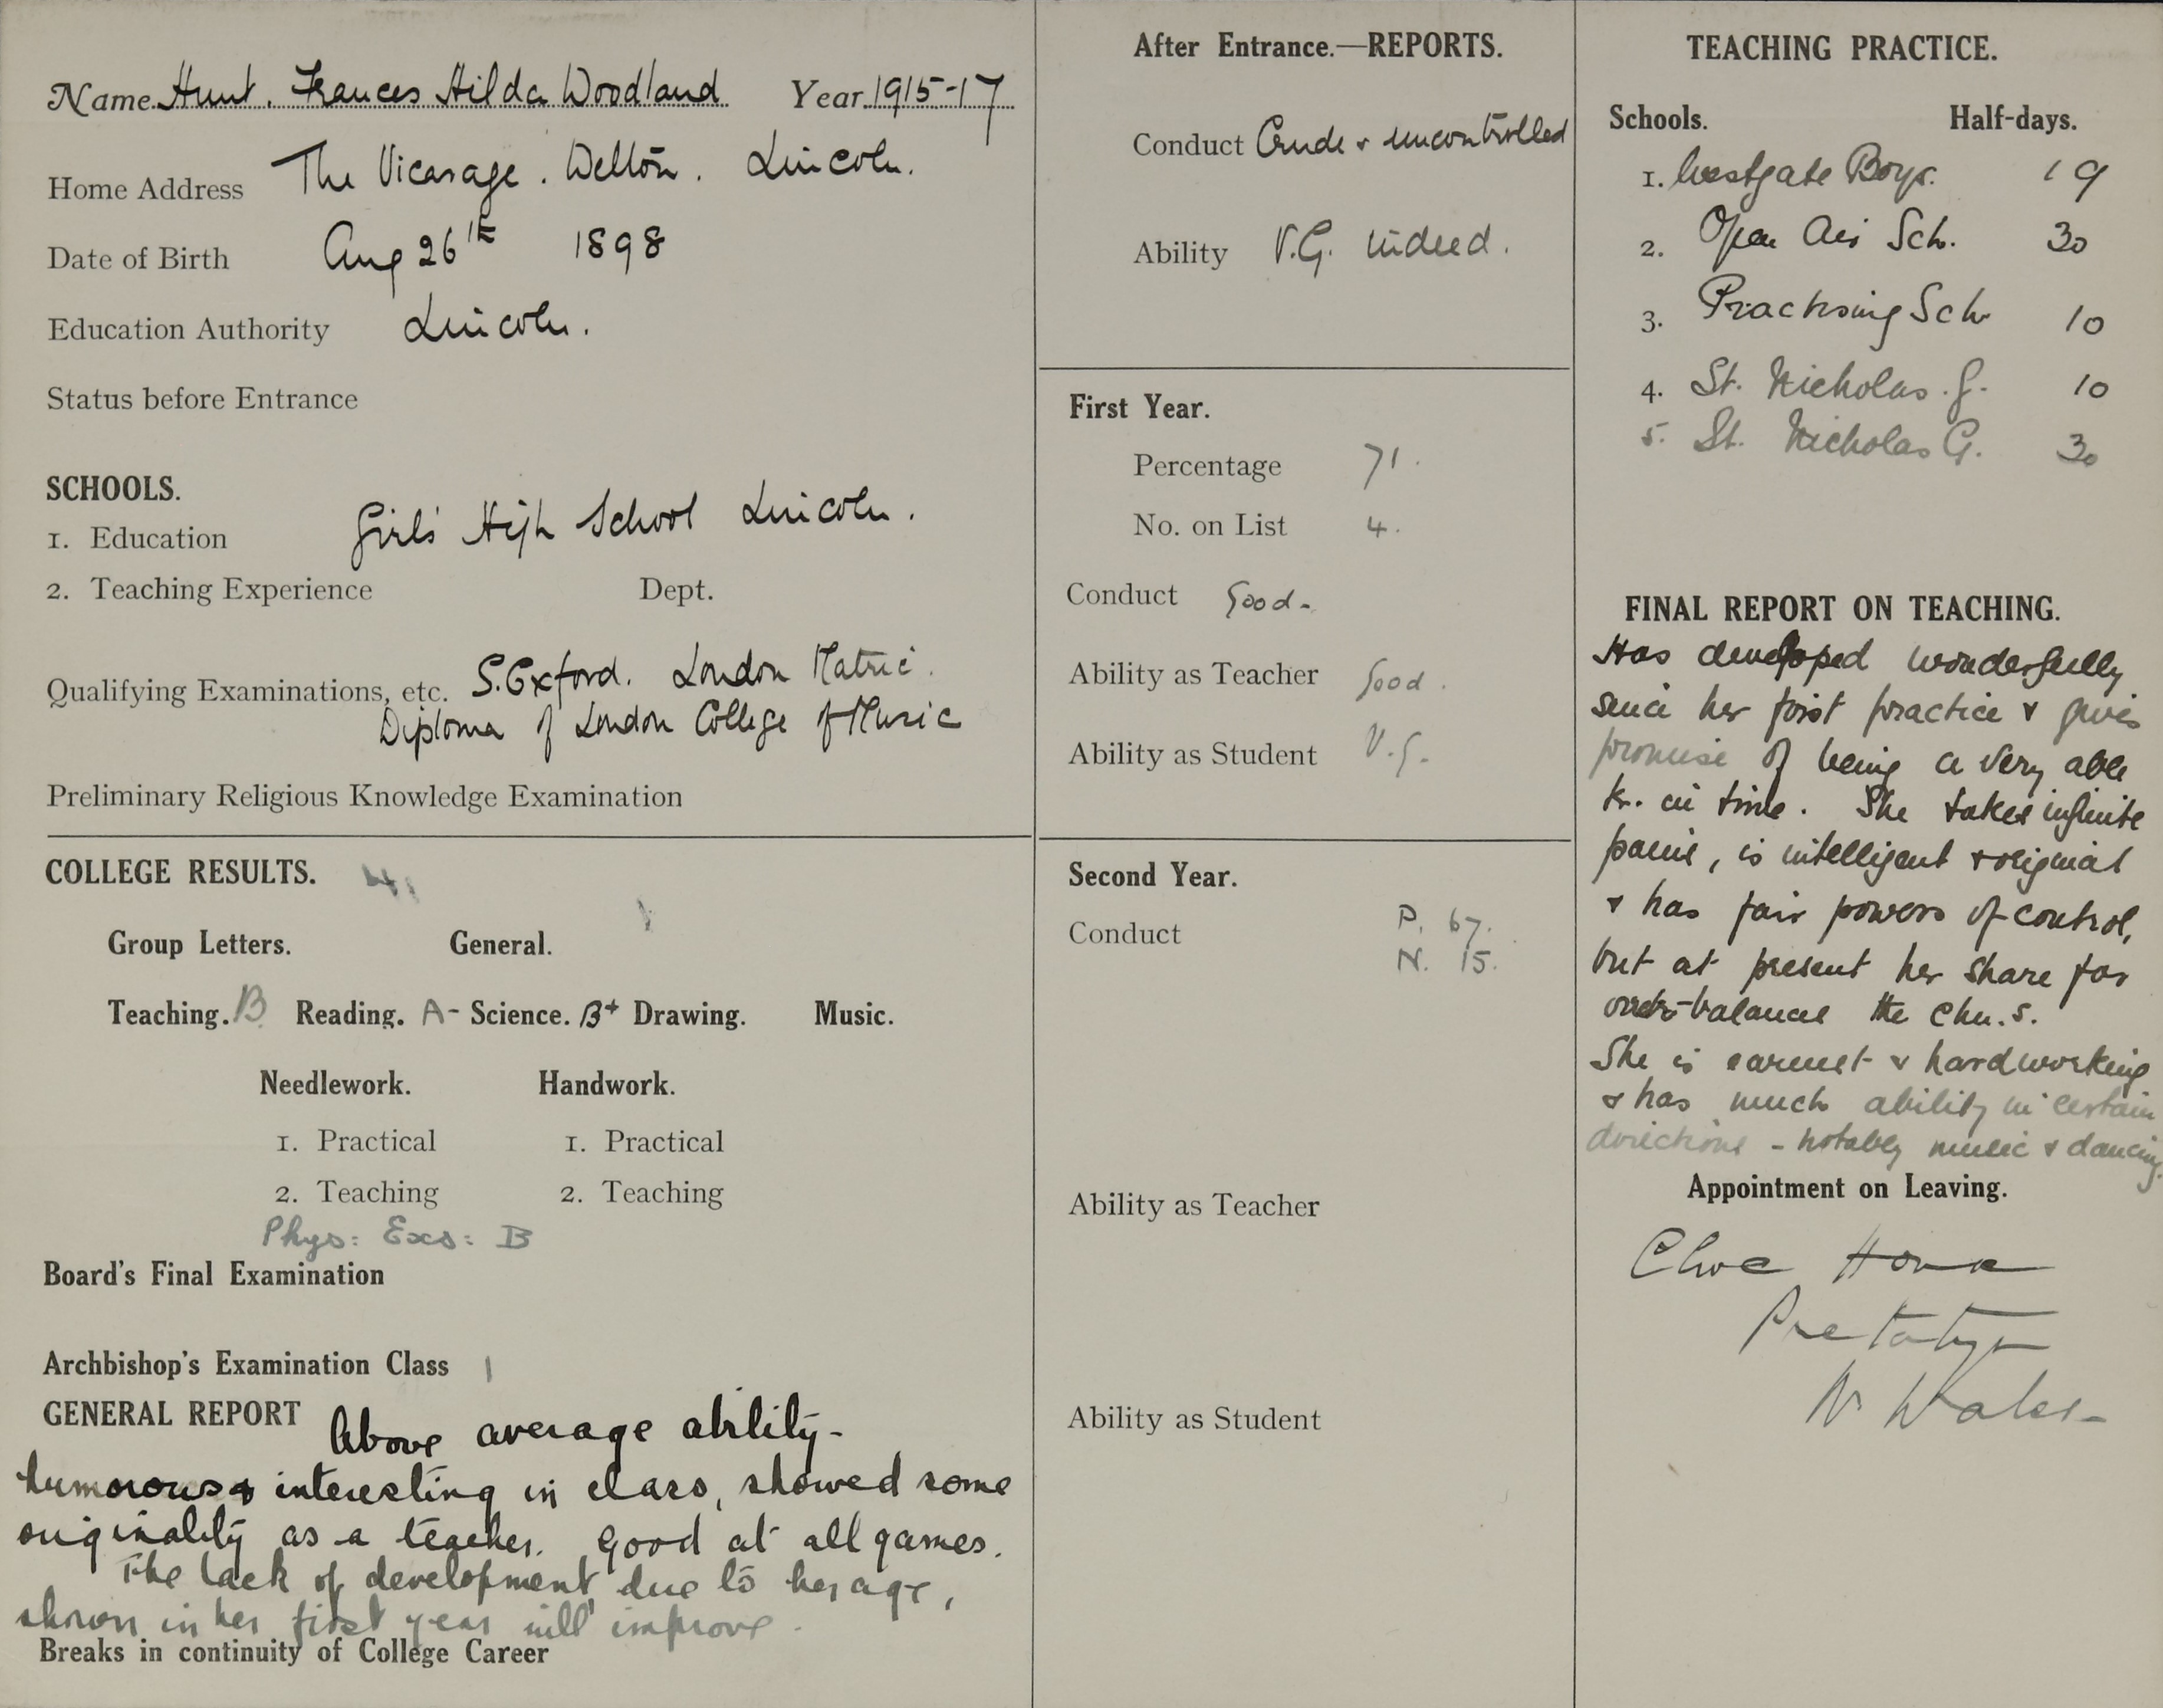 Name Hunt, Frances Hilda Woodland Year 1915-17
Home Address The Vicarage. Welton. Lincoln.
Date of Birth Aug 26th 1898
Education Authority Lincoln.
Status before Entrance
SCHOOLS.
1. Education Girls' High School Lincoln.
2. Teaching Experience Dept.
Qualifying Examinations, etc. S. Oxford. London Matric.
Diploma of London College of Music
Preliminary Religious Knowledge Examination
COLLEGE RESULTS.
Group Letters. General.
Teaching. B Reading. A- Science. B+ Drawing. Music.
Needlework. Handwork.
1. Practical 1. Practical
2. Teaching 2. Teaching
Phys: Exs: B
Board's Final Examination
Archbishop's Examination Class 1
GENERAL REPORT Above average ability-
humorous & interesting in class, showed some
originality as a teacher. Good at all games.
The lack of development due to her age,
shown in her first year will improve.
Breaks in continuity of College Career
After Entrance.—REPORTS.
Conduct Crude & uncontrolled
Ability V.G. indeed.
First Year.
Percentage 71.
No. on List 4.
Conduct Good.
Ability as Teacher Good.
Ability as Student V.G.
Second Year.
Conduct P. 67.
N. 15.
Ability as Teacher
Ability as Student
TEACHING PRACTICE.
Schools. Half-days.
1. Westgate Boys. 19
2. Open Air Sch. 30
3. Practising Sch 10
4. St. Nicholas. G. 10
5. St. Nicholas G. 30
FINAL REPORT ON TEACHING.
Has developed wonderfully
since her first practice & gives
promise of being a very able
tr. in time. She takes infinite
pains, is intelligent & original
& has fair powers of control,
but at present her share far
over-balances the chn.'s.
She is earnest & hardworking
& has much ability in certain
directions - notably music & dancing.
Appointment on Leaving.
Clive House
Prestatyn
N. Wales-